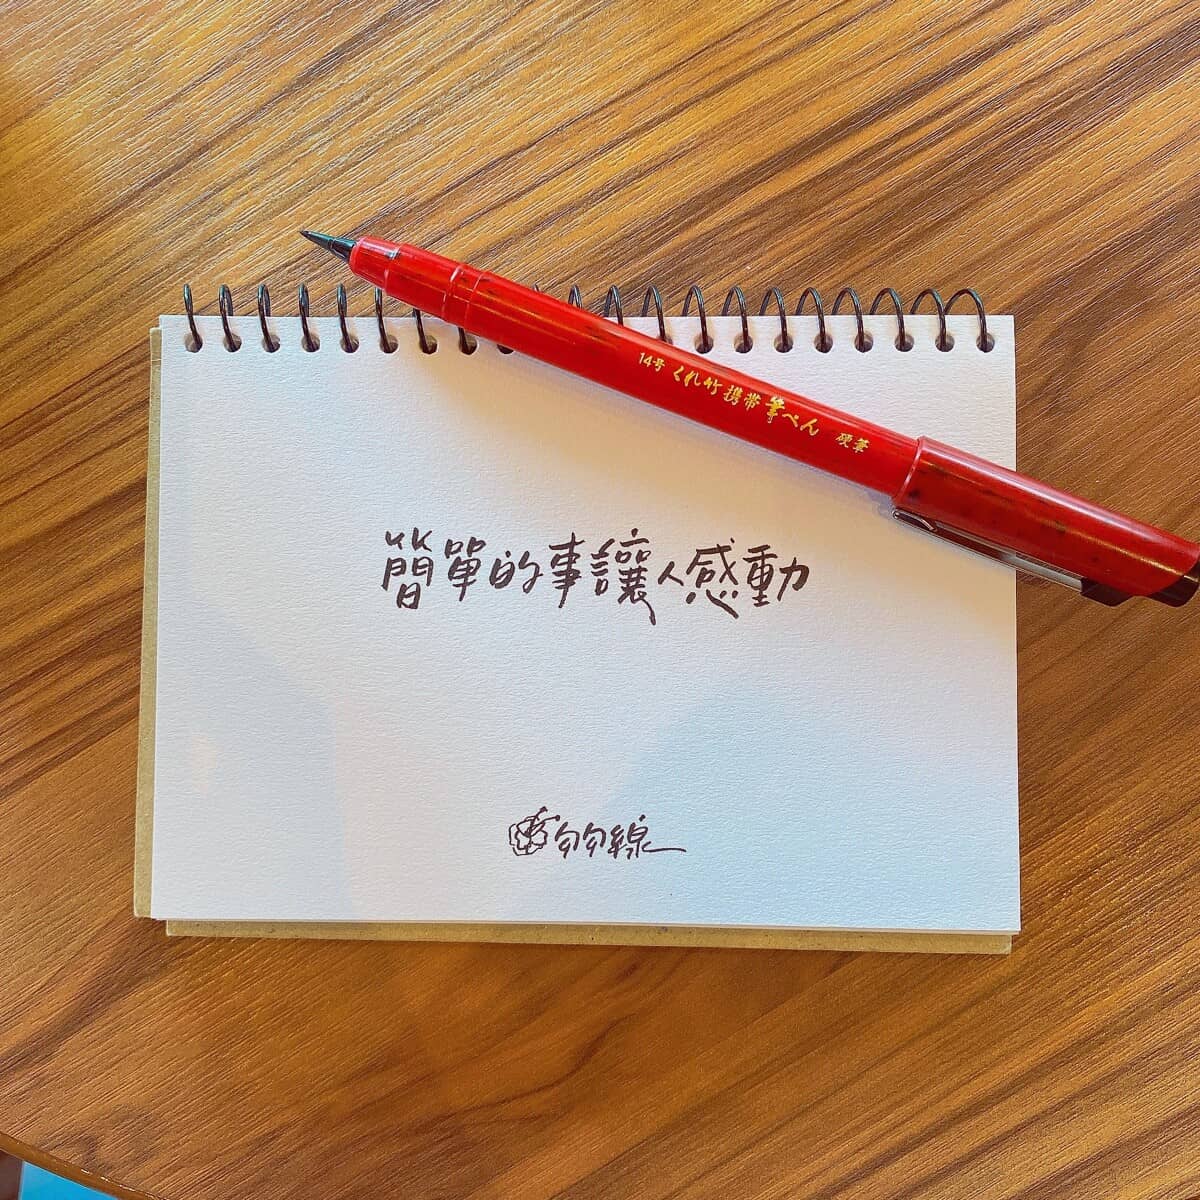 14号 くれ竹 携帯 筆ぺん 硬筆
簡單的事讓人感動
勿勿線